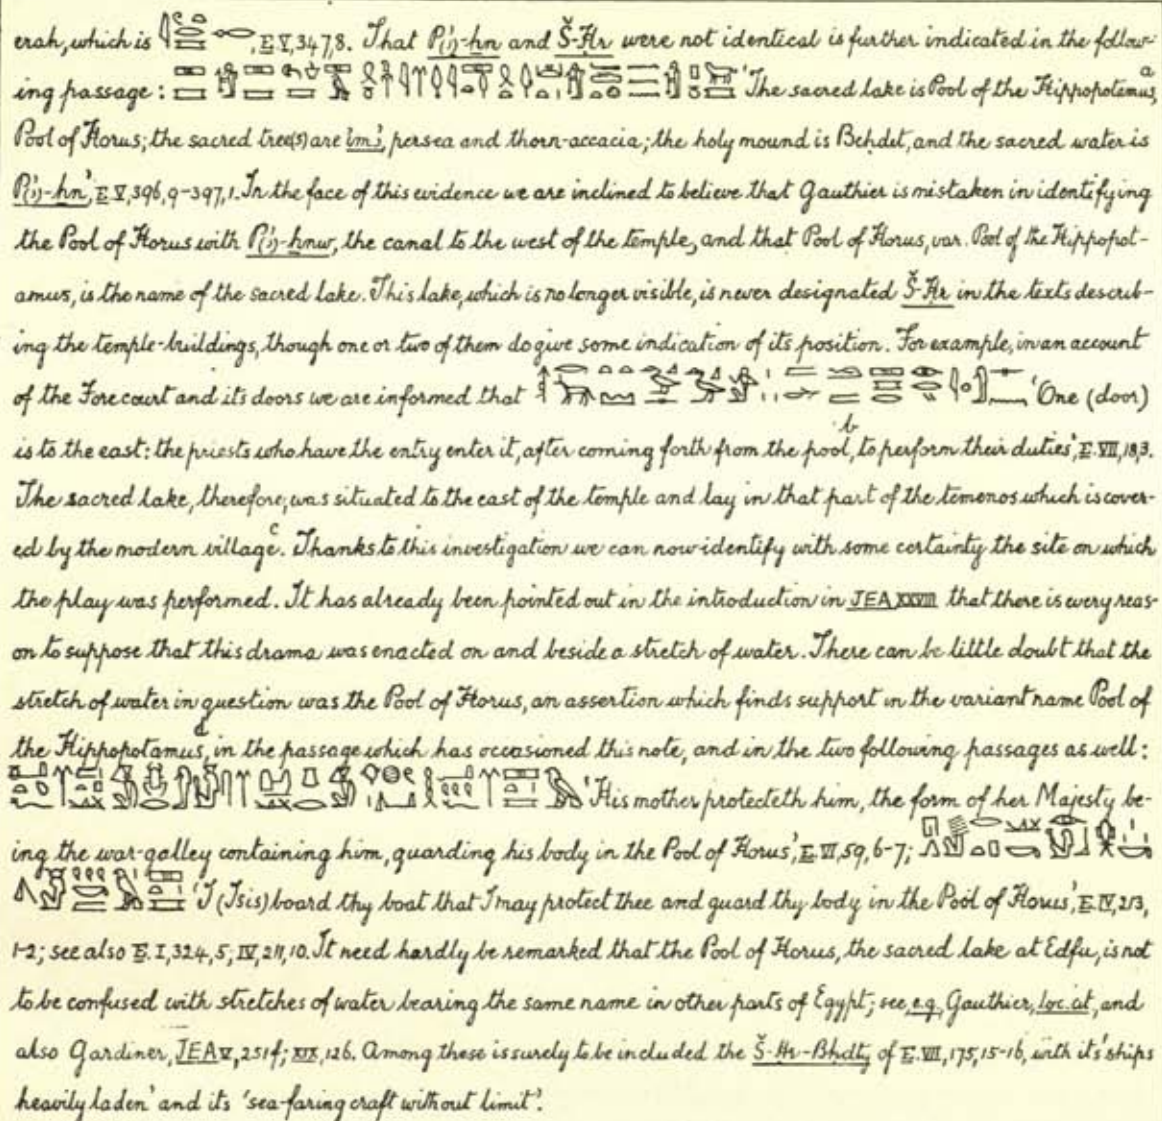 erah, which is , E. V, 347, 8. That P(ꜣ)-ḫn and Š-Ḥr were not identical is further indicated in the follow-
ing passage : 'The sacred lake is Pool of the Hippopotamus,ᵃ
Pool of Horus; the sacred tree(s) are ỉmꜣ, persea and thorn-accacia; the holy mound is Beḥdet, and the sacred water is
P(ꜣ)-ḫn', E. V, 396, 9-397, 1. In the face of this evidence we are inclined to believe that Gauthier is mistaken in identifying
the Pool of Horus with P(ꜣ)-ḫnw, the canal to the west of the temple, and that Pool of Horus, var. Pool of the Hippopot-
amus, is the name of the sacred lake. This lake, which is no longer visible, is never designated Š-Ḥr in the texts describ-
ing the temple-buildings, though one or two of them do give some indication of its position. For example, in an account
of the Forecourt and its doors we are informed that 'One (door)
is to the east: the priests who have the entry enter it, after coming forth from the pool,ᵇ to perform their duties', E. VII, 18, 3.
The sacred lake, therefore, was situated to the east of the temple and lay in that part of the temenos which is cover-
ed by the modern village.ᶜ Thanks to this investigation we can now identify with some certainty the site on which
the play was performed. It has already been pointed out in the introduction in JEA XXVIII that there is every reas-
on to suppose that this drama was enacted on and beside a stretch of water. There can be little doubt that the
stretch of water in question was the Pool of Horus, an assertion which finds support in the variant name Pool of
the Hippopotamus,ᵈ in the passage which has occasioned this note, and in the two following passages as well:
'His mother protecteth him, the form of her Majesty be-
ing the war-galley containing him, guarding his body in the Pool of Horus', E. VI, 59, 6-7;
'I (Isis) board thy boat that I may protect thee and guard thy body in the Pool of Horus', E. IV, 213,
1-2; see also E. I, 324, 5; IV, 211, 10. It need hardly be remarked that the Pool of Horus, the sacred lake at Edfu, is not
to be confused with stretches of water bearing the same name in other parts of Egypt; see, e.g., Gauthier, loc. cit., and
also Gardiner, JEA V, 251 f; XIX, 126. Among these is surely to be included the Š-Ḥr-Bḥdt, of E. VII, 175, 15-16, with its 'ships
heavily laden' and its 'sea-faring craft without limit'.